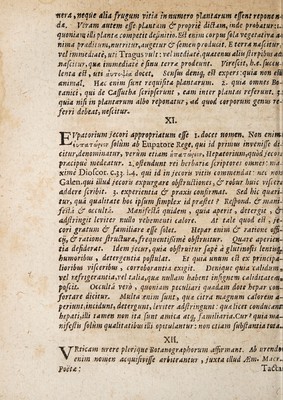 nera, neque alia frugum vitia in numero plantarum essent reponenda. Veram autem esse plantam & propriè dictam, inde probatur:
quoniam illi plantæ competit definitio. Est enim corpus sola vegetativa anima præditum, nutritur, augetur & semen producit. E terra nascitur,
vel immediatè, uti Tragus vult: vel mediatè quatenus alii stirpibus adnascitur, quæ immediatè è sinu terræ prodeunt. Virescit, h.e. succulenta est, uti
Semen denique est, expers: quia non est
animal. Hac enim sunt requisita plantarum. 2. quia omnes Botanici, qui de Cassutha scripserunt, eam inter plantas referunt. 3.
quia nisi in plantarum albo reponatur, ad quod corporum genus referri debeat, nescitur.
XI.
EUpatorium jecori appropriatum esse 1. docet nomen. Non enim
solùm ab Eupatore Rege, qui id primus invenisse dicitur, denominatur, verùm etiam
Hepatorium, quod jecori
præcipuè medicatur. 2. ostendunt rei herbariæ scriptores omnes: maximè Dioscor. l.4. qui id in jecoris vitiis commendat: nec non
Galen. qui illud jecoris expurgare obstructiones, & robur huic visceri addere scribit. 3. experientia & praxis confirmat. Sed hîc quæritur, quâ qualitate hoc ipsum simplex id præstet? Respond. & manifestâ & occultâ. Manifestâ quidem, quia aperit, detergit, &
adstringit leviter nullo vehementi calore. at tale quod est, jecori gratum & familiare esse solet. Hepar enim & ratione officii, & ratione structuræ, frequentissimè obstruitur. Quare aperientia desiderat. Idem jecur, quia obstruitur sæpè à glutinosis lentisq́;
humoribus, detergentia postulat. Et quia unum est ex principalioribus visceribus, corroborantia exigit. Denique quia calidum,
vel refrigerantia, vel talia, quæ nullam habent insignem caliditatem,
poscit. Occultâ verò, quoniam peculiari quadam dote hepar confortare dicitur. Multa enim sunt, quæ citra magnum calorem aperiunt, incidunt, detergunt, leviter adstringunt: quæ licet conducant
hepati, illi tamen non ita sunt amica atq́; familiaria. Cur? quia manifestis solùm qualitatibus illi opitulantur: non etiam substantia tota.
XII.
URticam urere plerique Botanographorum affirmant. Ab urendo
enim nomen acquisivisse arbitrantur, juxta illud Æm. Macr.
Poëtæ:
Tacta